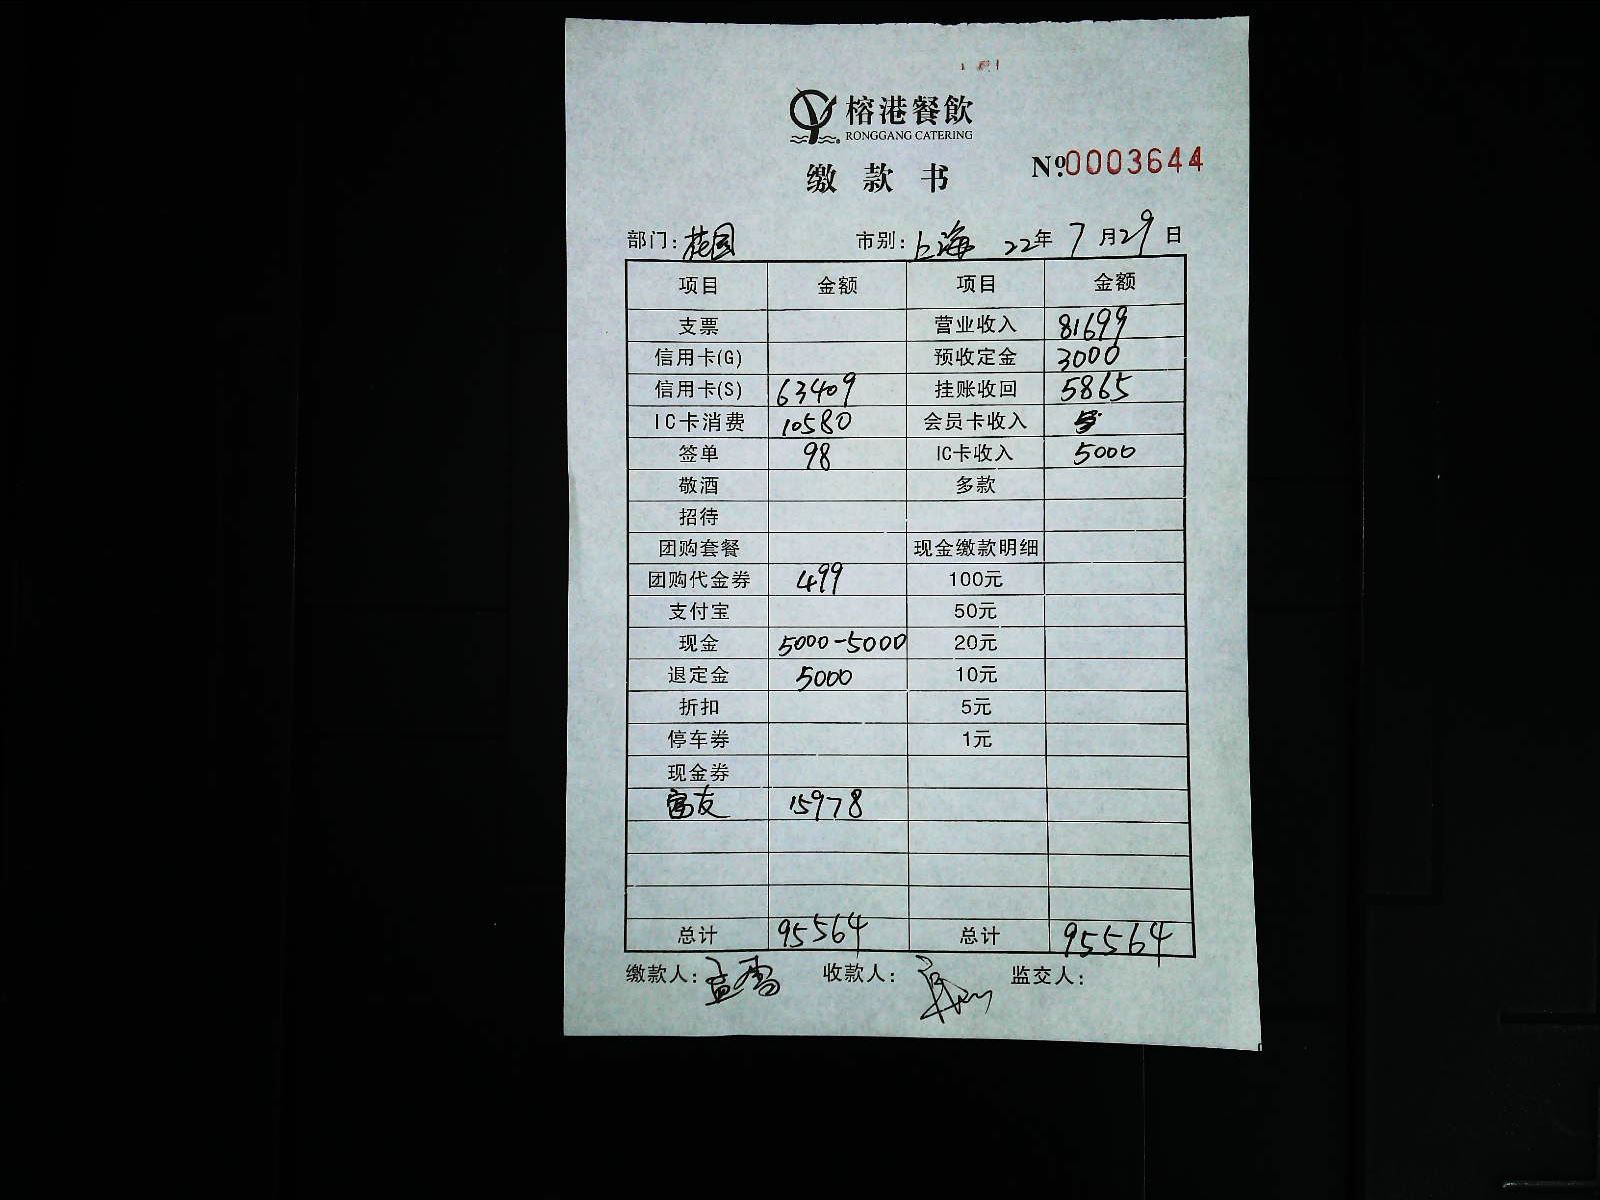 榕港餐飲
RONGGANG CATERING
缴款书
№0003644
部门：花园 市别：上海 22年7月29日
项目 金额 项目 金额
支票 营业收入 81699
信用卡(G) 预收定金 3000
信用卡(S) 63409 挂账收回 5865
IC卡消费 10580 会员卡收入
签单 98 IC卡收入 5000
敬酒 多款
招待
团购套餐 现金缴款明细
团购代金券 499 100元
支付宝 50元
现金 5000-5000 20元
退定金 5000 10元
折扣 5元
停车券 1元
现金券
富友 15978
总计 95564 总计 95564
缴款人： 收款人： 监交人：